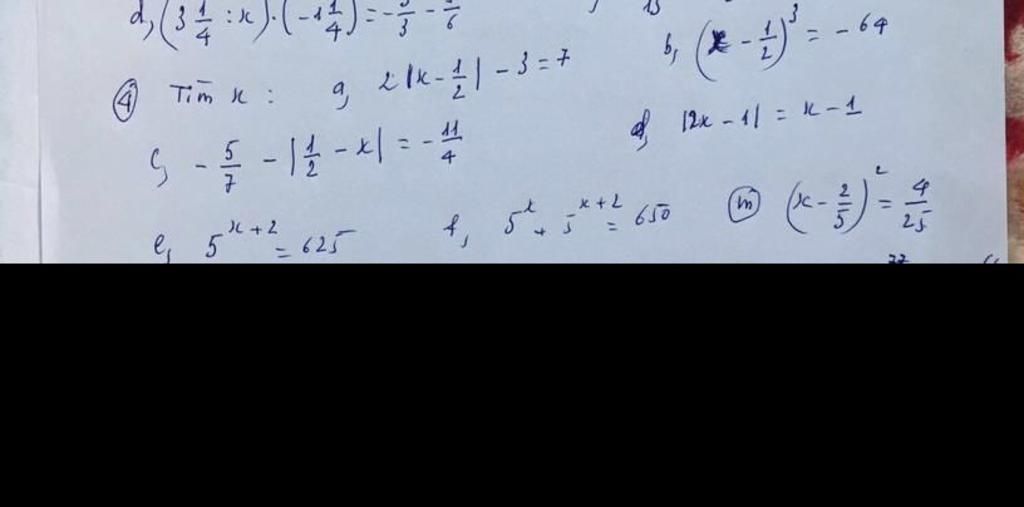 d, (3 1/4 : x) . (-1 1/4) = - 5/3 - 5/6
13
④ Tìm x : a, 2|x - 1/2| - 3 = 7 b, (x - 1/2)³ = - 64
c, - 5/7 - |1/2 - x| = - 11/4 d, |2x - 1| = x - 1
e, 5^(x+2) = 625 f, 5^x + 5^(x+2) = 650 ⓜ (x - 2/5)² = 4/25